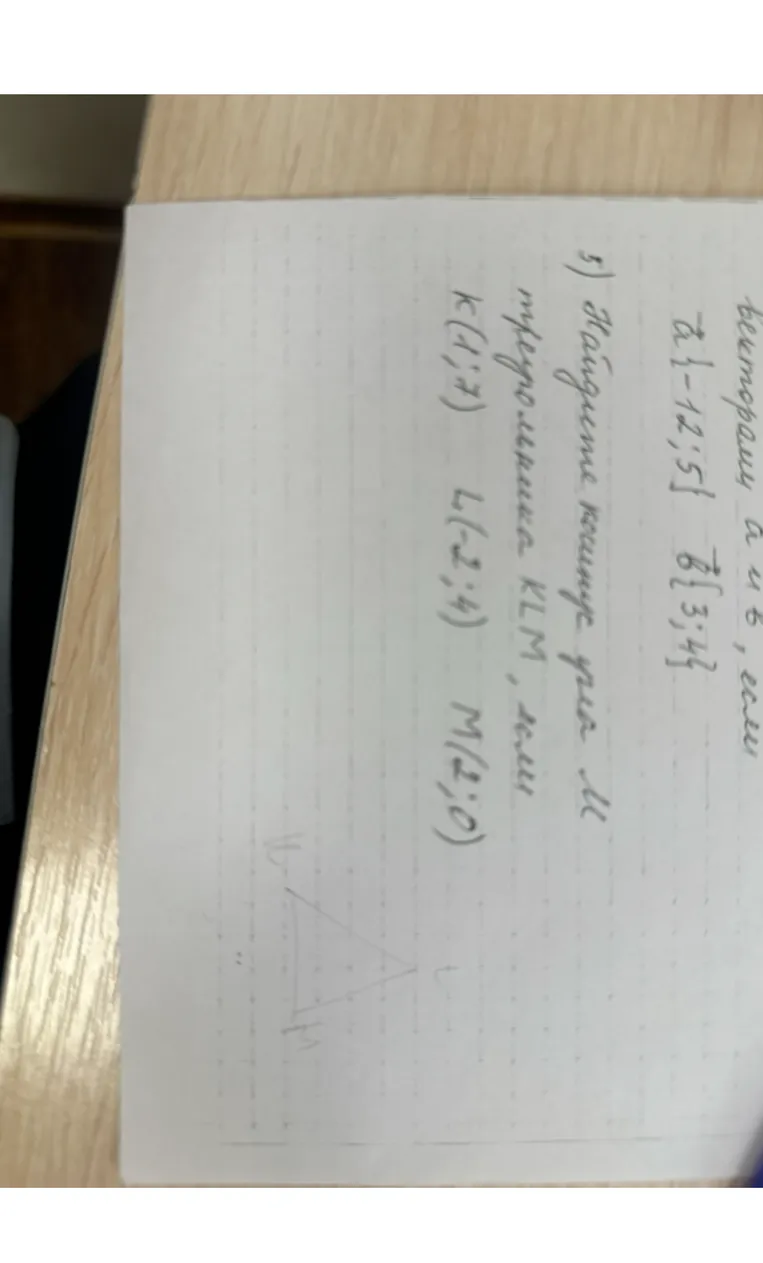 векторами a и b, если
a{-12;5} b{3;4}
3) Найдите косинус угла M
треугольника KLM, если
K(1;7) L(-2;4) M(2;0)
L
K M